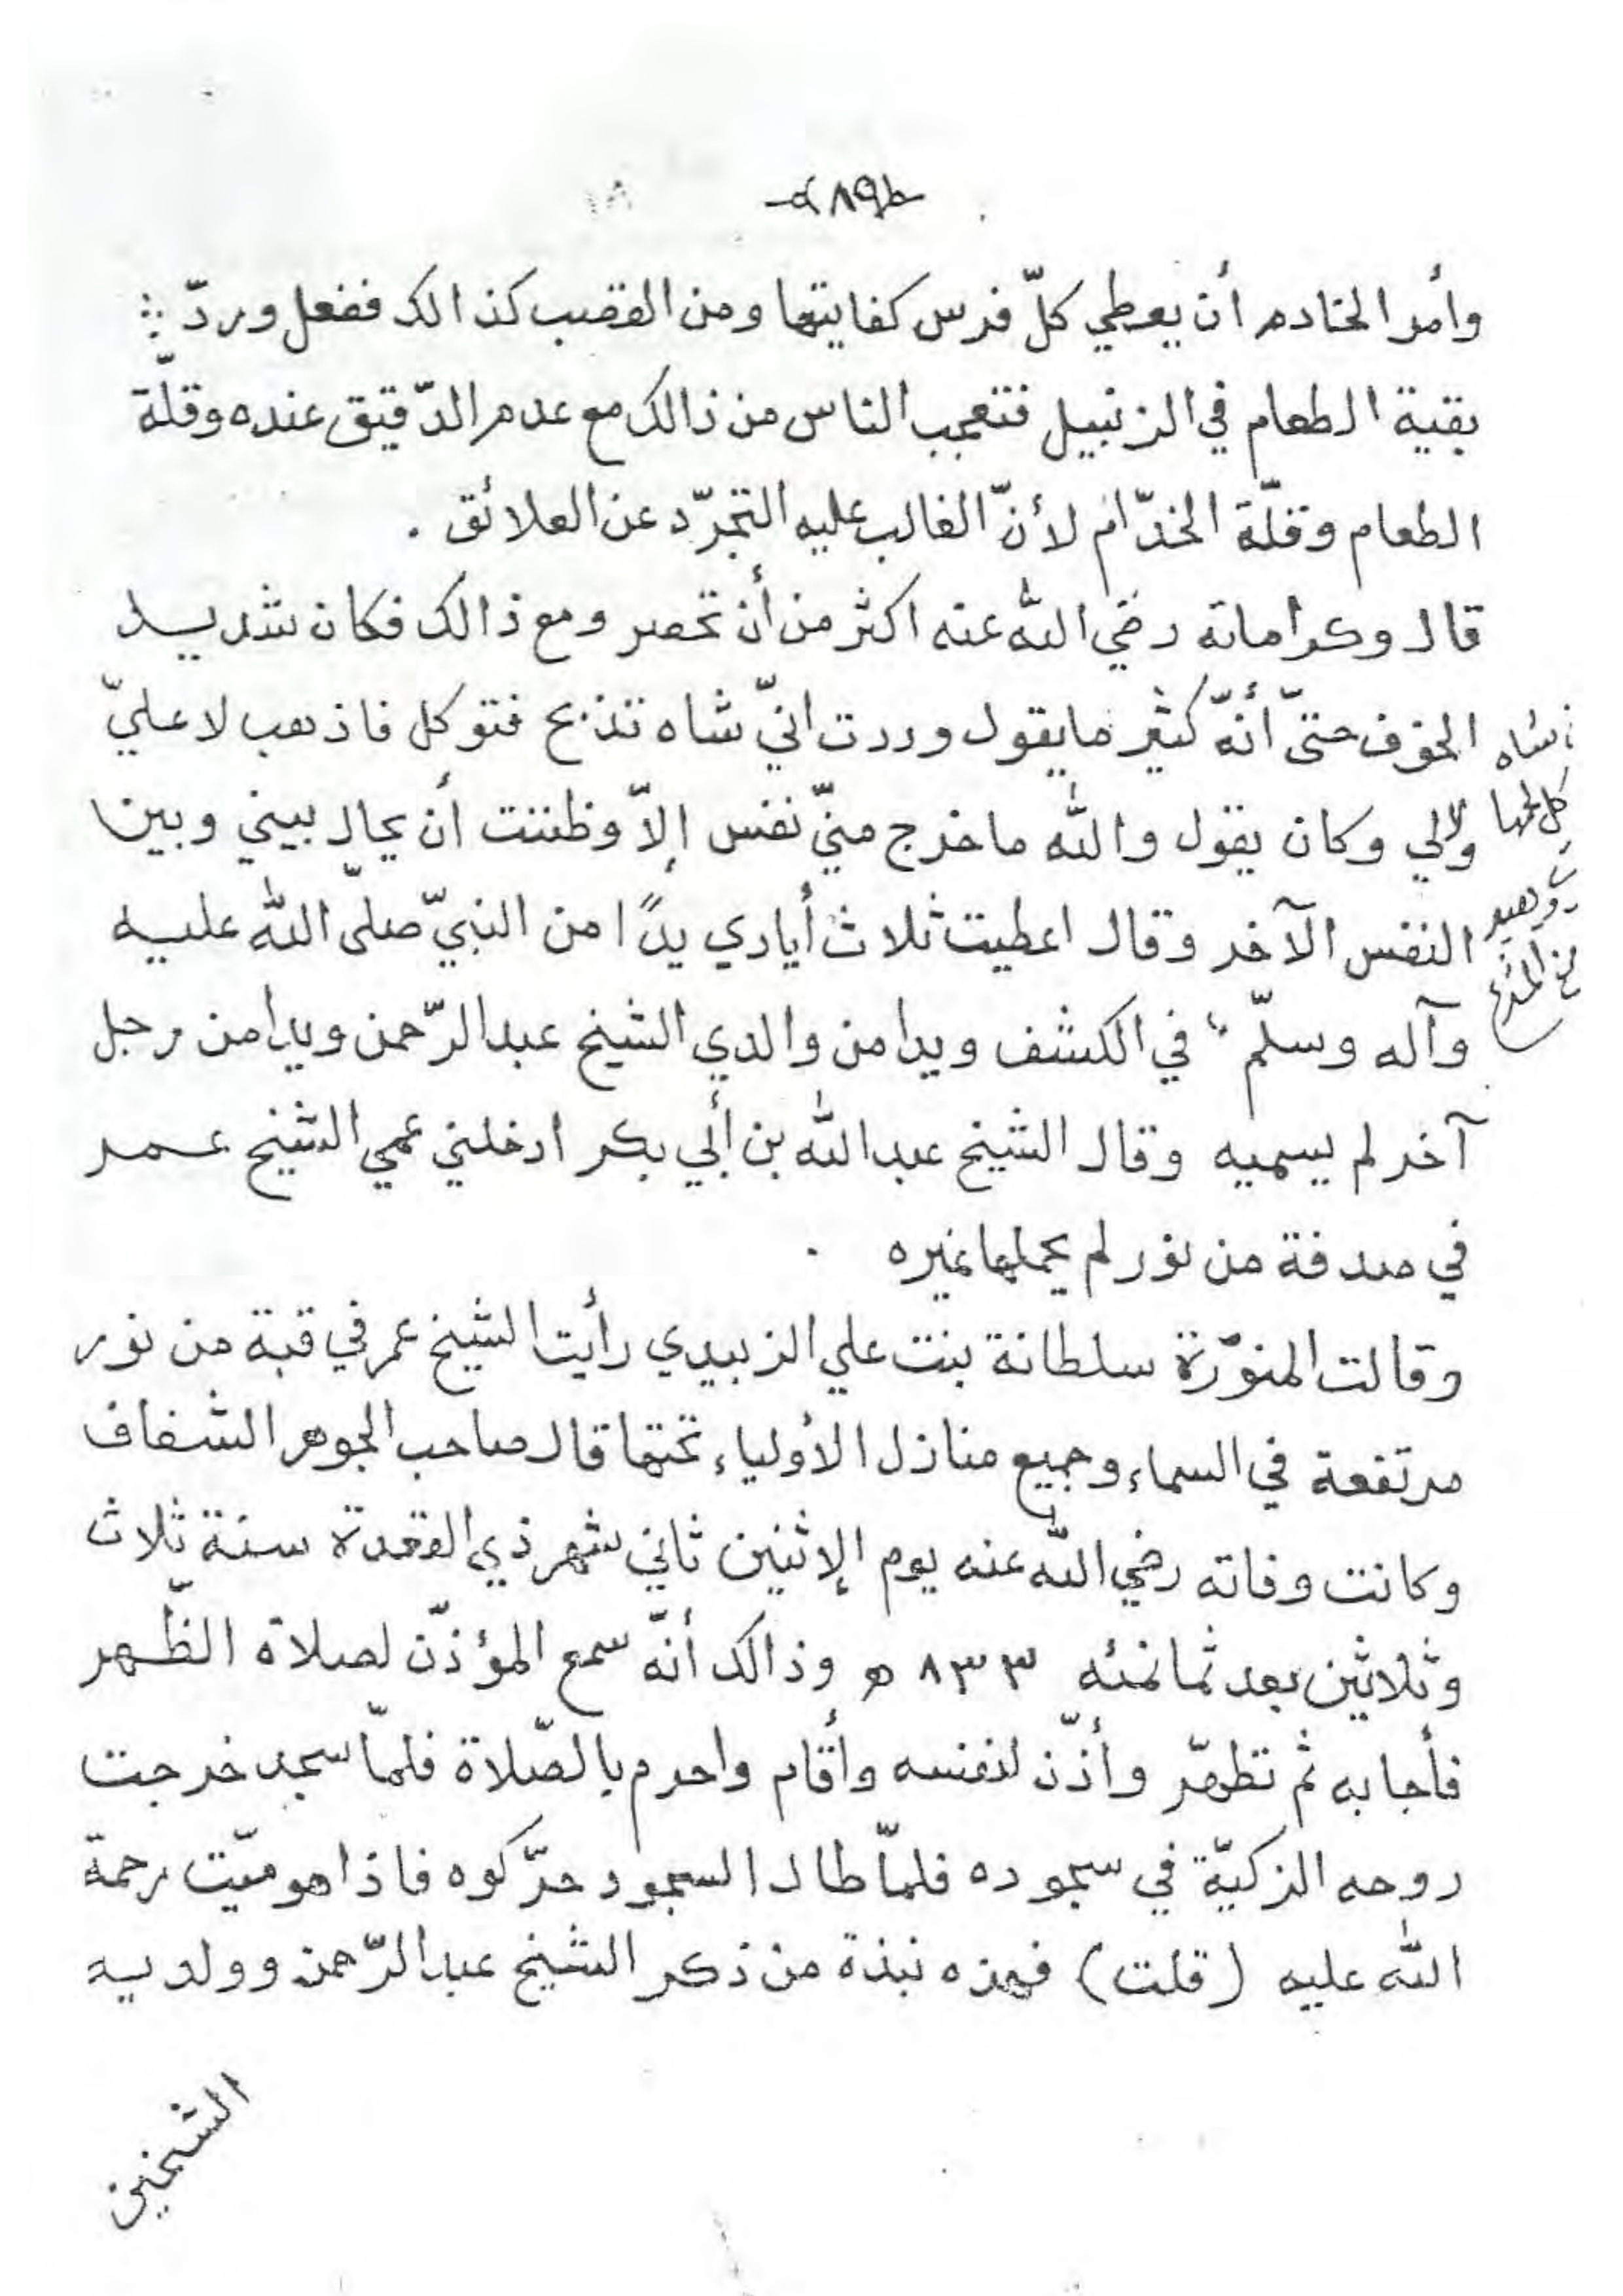 ٨٩
وأمر الخادم أن يعطي كلّ فرس كفايتها ومن القصب كذالك ففعل وردّ
بقية الطعام في الزنبيل فتعجب الناس من ذالك مع عدم الدّقيق عنده وقلّة
الطعام وقلّة الخدّام لأنّ الغالب عليه التجرّد عن العلائق .
قال وكراماته رضي اللّه عنه اكثر من أن تحصر ومع ذالك فكان شديد
الخوف حتىّ أنّه كثير ما يقول وددت انيّ شاه تذبح فتوكل فاذهب لا عليّ
ولا لي وكان يقول واللّه ما خرج منيّ نفس إلاّ وظننت أن يحال بيني وبين
النفس الآخر وقال اعطيت ثلاث أيادي يدًا من النبيّ صلىّ اللّه عليه
وآله وسلّم في الكشف ويدا من والدي الشيخ عبد الرّحمن ويدا من رجل
آخر لم يسميه وقال الشيخ عبد اللّه بن أبي بكر ادخلني عمي الشيخ عمر
في صدفة من نور لم يحملها غيره .
وقالت المنوّرة سلطانة بنت علي الزبيدي رأيت الشيخ عمر في قبة من نور
مرتفعة في السماء وجميع منازل الأولياء تحتها قال صاحب الجوهر الشفاف
وكانت وفاته رضي اللّه عنه يوم الإثنين ثاني شهر ذي القعدة سنة ثلاث
وثلاثين بعد ثمانمئه ٨٣٣ ه وذالك أنّه سمع المؤذّن لصلاة الظّهر
فأجابه ثم تطهّر وأذّن لنفسه وأقام واحرم بالصّلاة فلمّا سجد خرجت
روحه الزكيّة في سجوده فلمّا طال السجود حرّكوه فاذا هو ميّت رحمة
اللّه عليه (قلت) فهذه نبذة من ذكر الشيخ عبد الرّحمن وولديه
الشيخين
شاه
كل لحمها